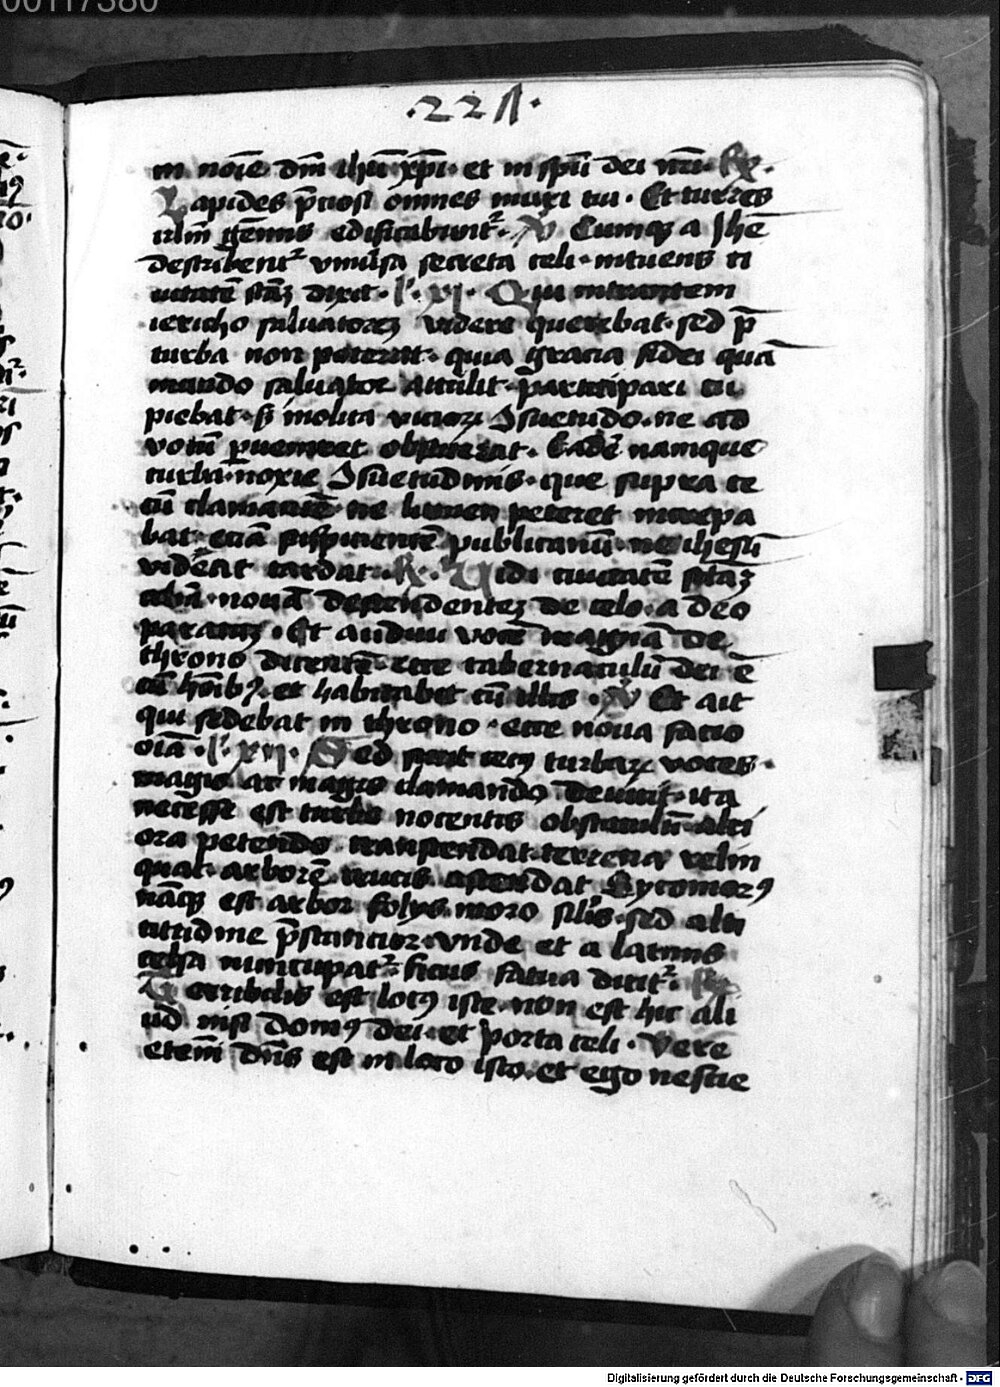 00117380
·221·
in noīe dn̄i ihū xp̄i· et in spū dei nrī· R̄·
Lapides p̄ciosi omnes muri tui· Et turres
irlm̄ gēmis edificabunt᷑· V̄ Cumq̨ a Jhē
describeret᷑ vniūsa secreta celi· intuens ci
uitatē sc̄aȝ dixit· l᷑· vj· Qui intrantem
iericho saluatoreȝ videre querebat· sed p̄
turba non poterat· quia gracia fidei quā
mundo saluator attulit· participari cu
piebat· sȝ inolita vicioꝝ ꝯsuetudo· ne ad
votū ꝑueniret obstiterat· Eadē namque
turba noxie ꝯsuetudinis· que supra ce
cū clamantē ne lumen peteret increpa
bat· eciā suspicientē publicanū· ne ihesū
videat tardat· R̄· Uidi ciuitatē sc̄aȝ
irlm̄· nouā descendenteȝ de celo· a deo
parataȝ· Et audiui vocē magnā de
throno dicentē· ecce tabernaculū dei ē
cū hōibꝰ· et habitabit cū illis· V̄ Et ait
qui sedebat in throno· ecce noua facio
oīa· l᷑· xvij· Sed sicut cecꝰ turbaꝝ voces·
magis ac magis clamando deuicit· ita
necesse est turbe nocentis obstaculū alci
ora petendo transcendat· terrena relin
quat· arborē crucis ascendat Sycomorꝰ
nāq̨ est arbor folijs moro silīs· sed alti
tudine p̄stancior· vnde et a latinis
celsa nuncupat᷑· ficus fatua dicit᷑· R̄
Terribilis est locꝰ iste· non est hic ali
ud nisi domꝰ dei· et porta celi· Vere
etem̄ dn̄s est in loco isto· et ego nescie
Digitalisierung gefördert durch die Deutsche Forschungsgemeinschaft - DFG